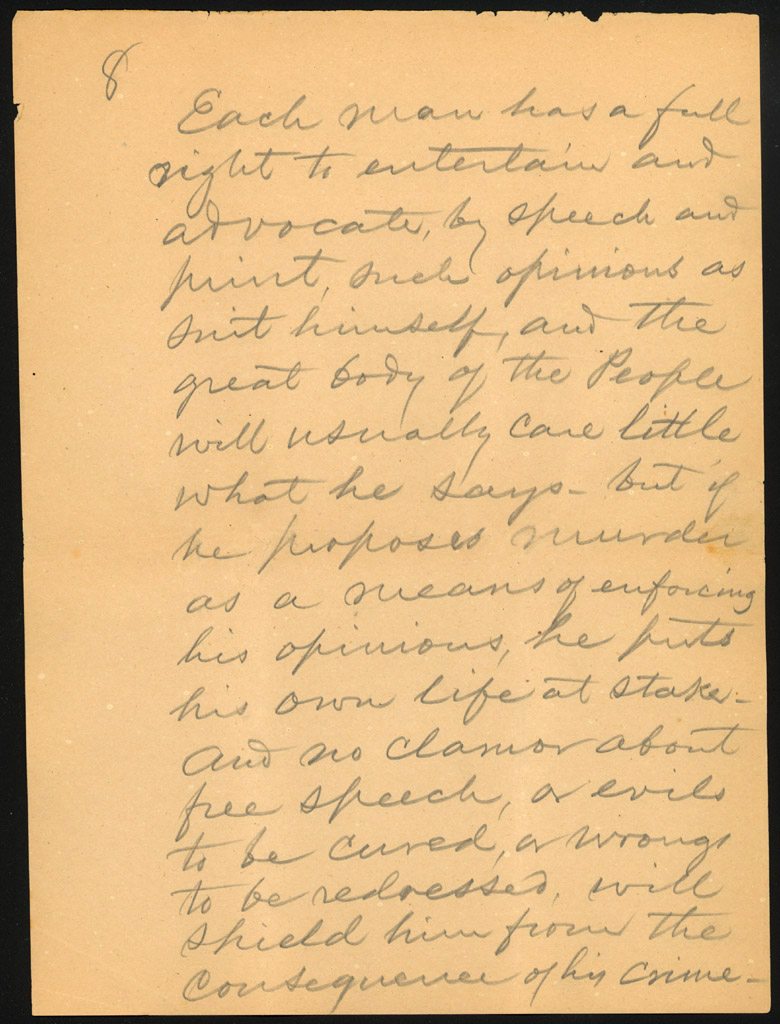 8
Each man has a full
right to entertain and
advocate, by speech and
print, such opinions as
suit himself, and the
great body of the People
will usually care little
what he says - but if
he proposes murder
as a means of enforcing
his opinions, he puts
his own life at stake -
And no clamor about
free speech, or evils
to be cured, or wrongs
to be redressed, will
shield him from the
consequence of his crime -